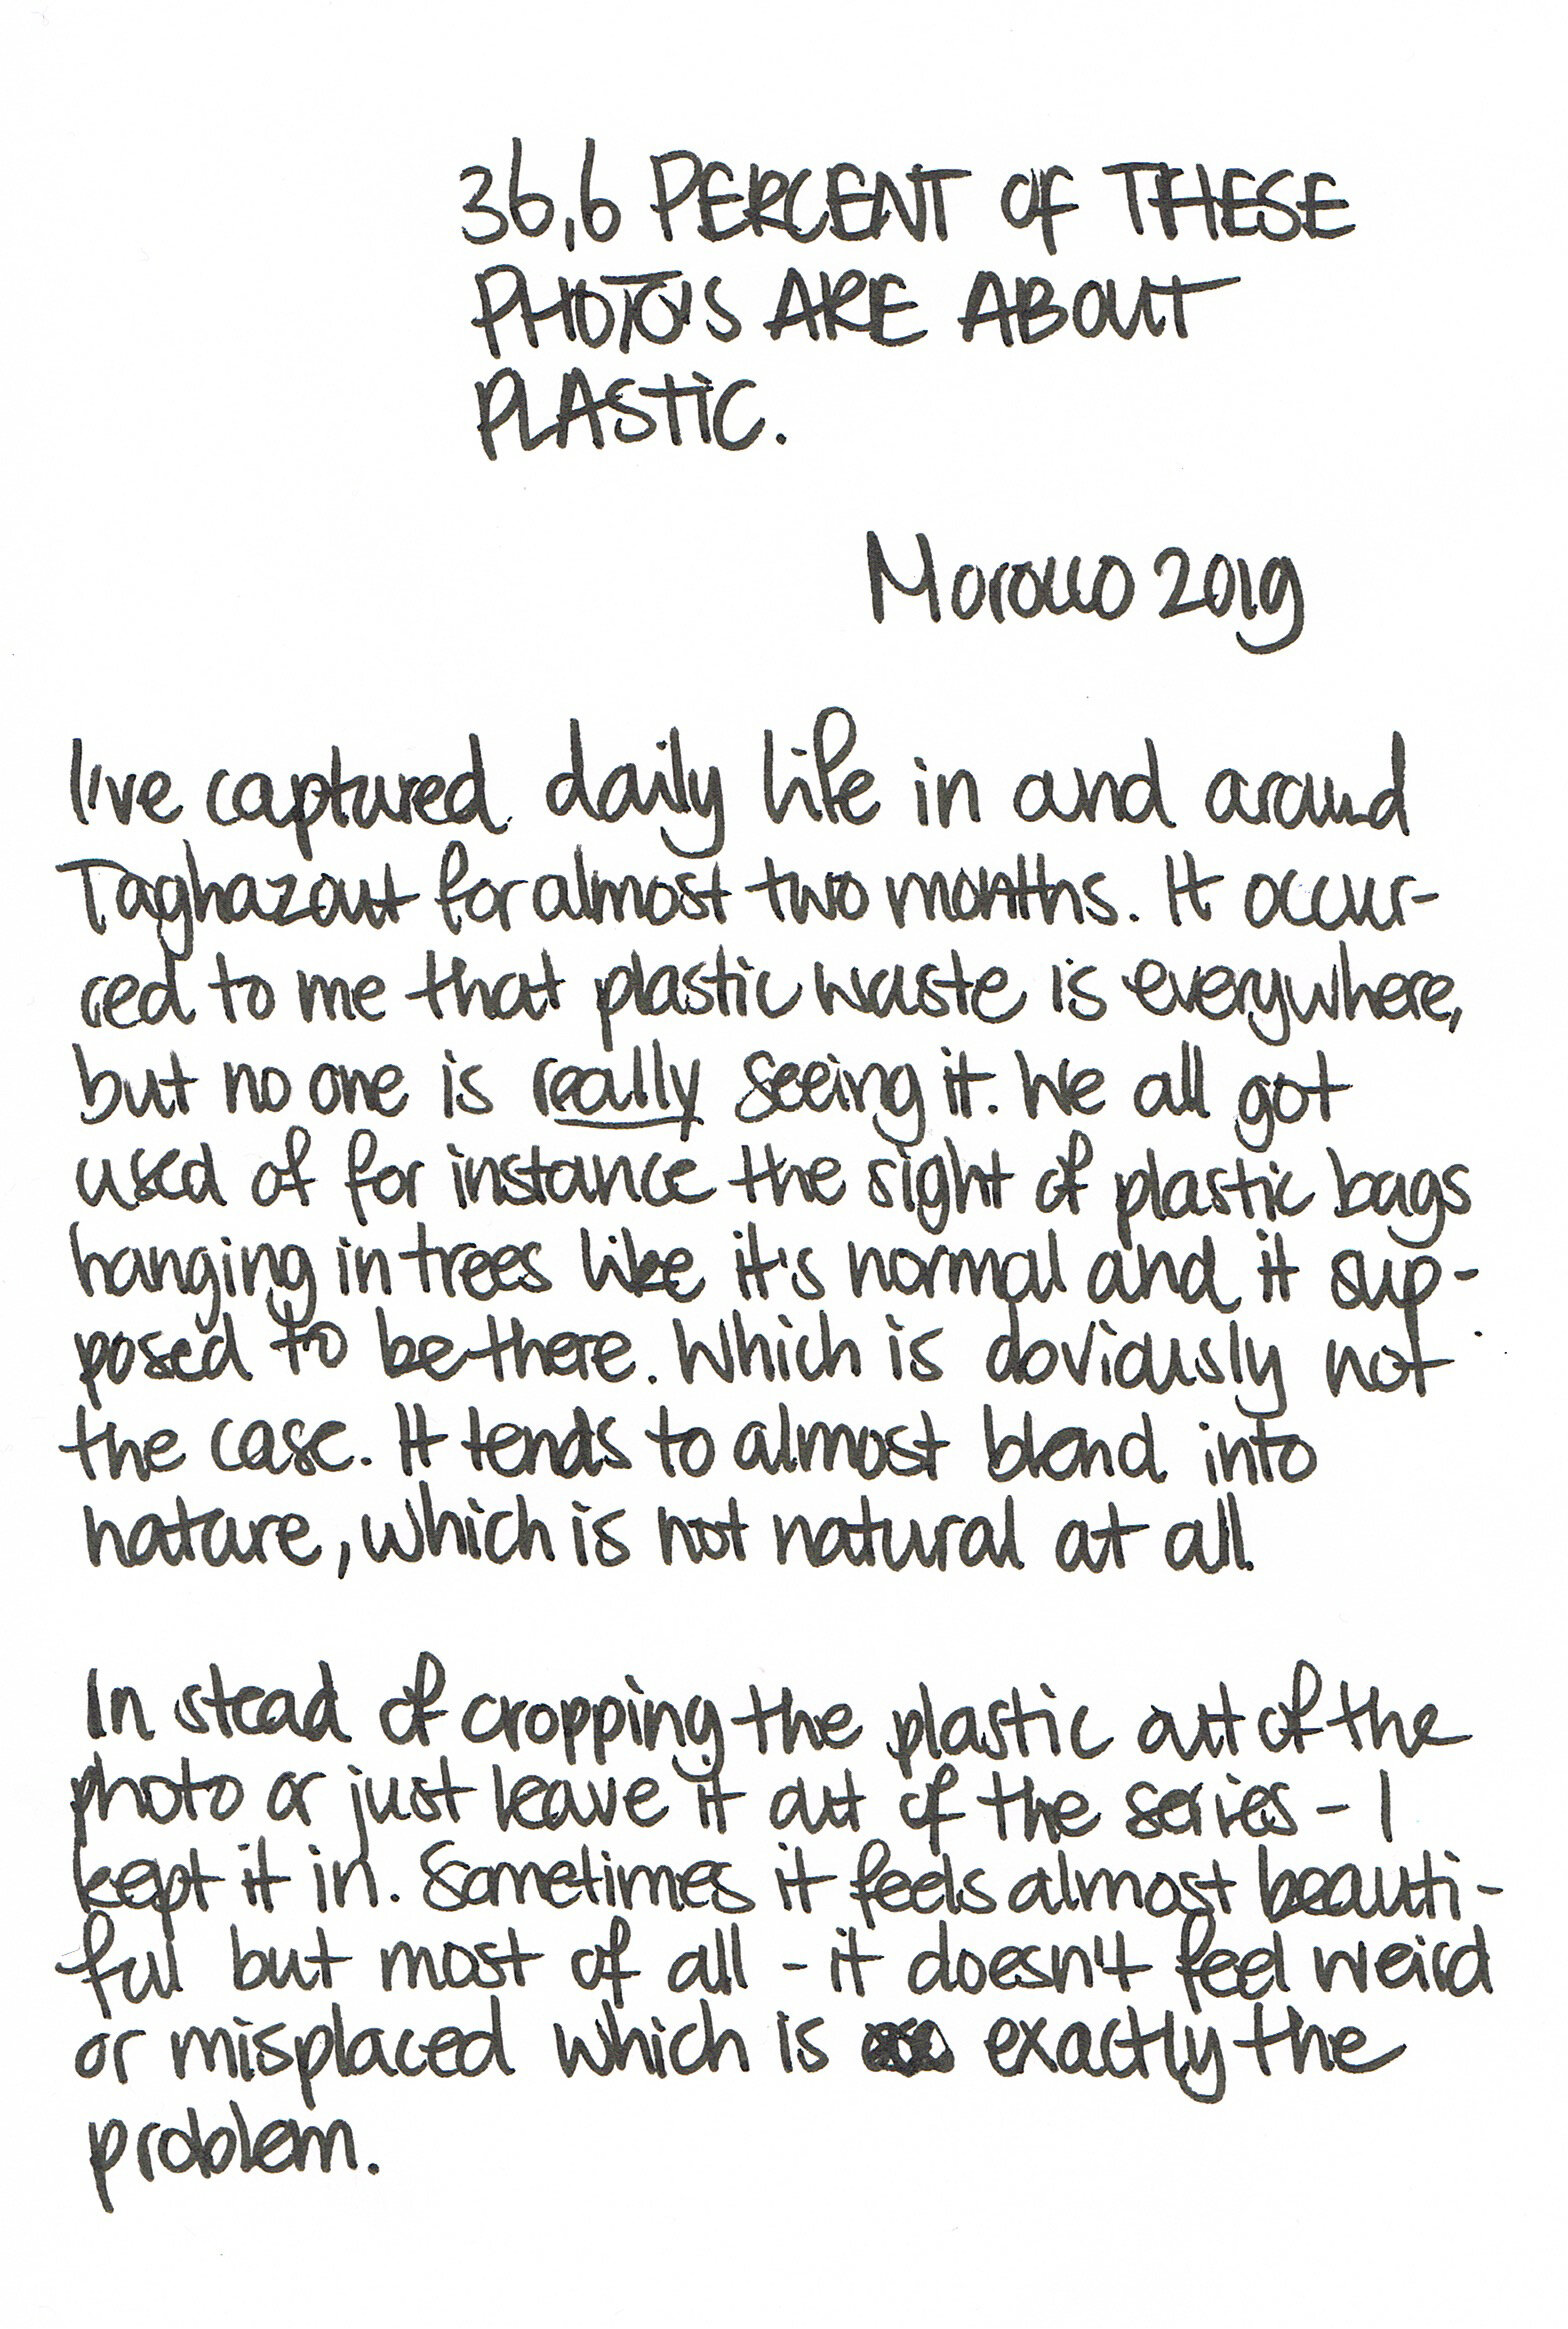 36,6 PERCENT OF THESE
PHOTO'S ARE ABOUT
PLASTIC.
Morocco 2019
I've captured daily life in and around
Taghazout for almost two months. It occur-
red to me that plastic waste is everywhere,
but no one is really seeing it. We all got
used of for instance the sight of plastic bags
hanging in trees like it's normal and it sup-
posed to be there. Which is obviously not
the case. It tends to almost blend into
nature, which is not natural at all.
In stead of cropping the plastic out of the
photo or just leave it out of the series - I
kept it in. Sometimes it feels almost beauti-
ful but most of all - it doesn't feel weird
or misplaced which is exactly the
problem.